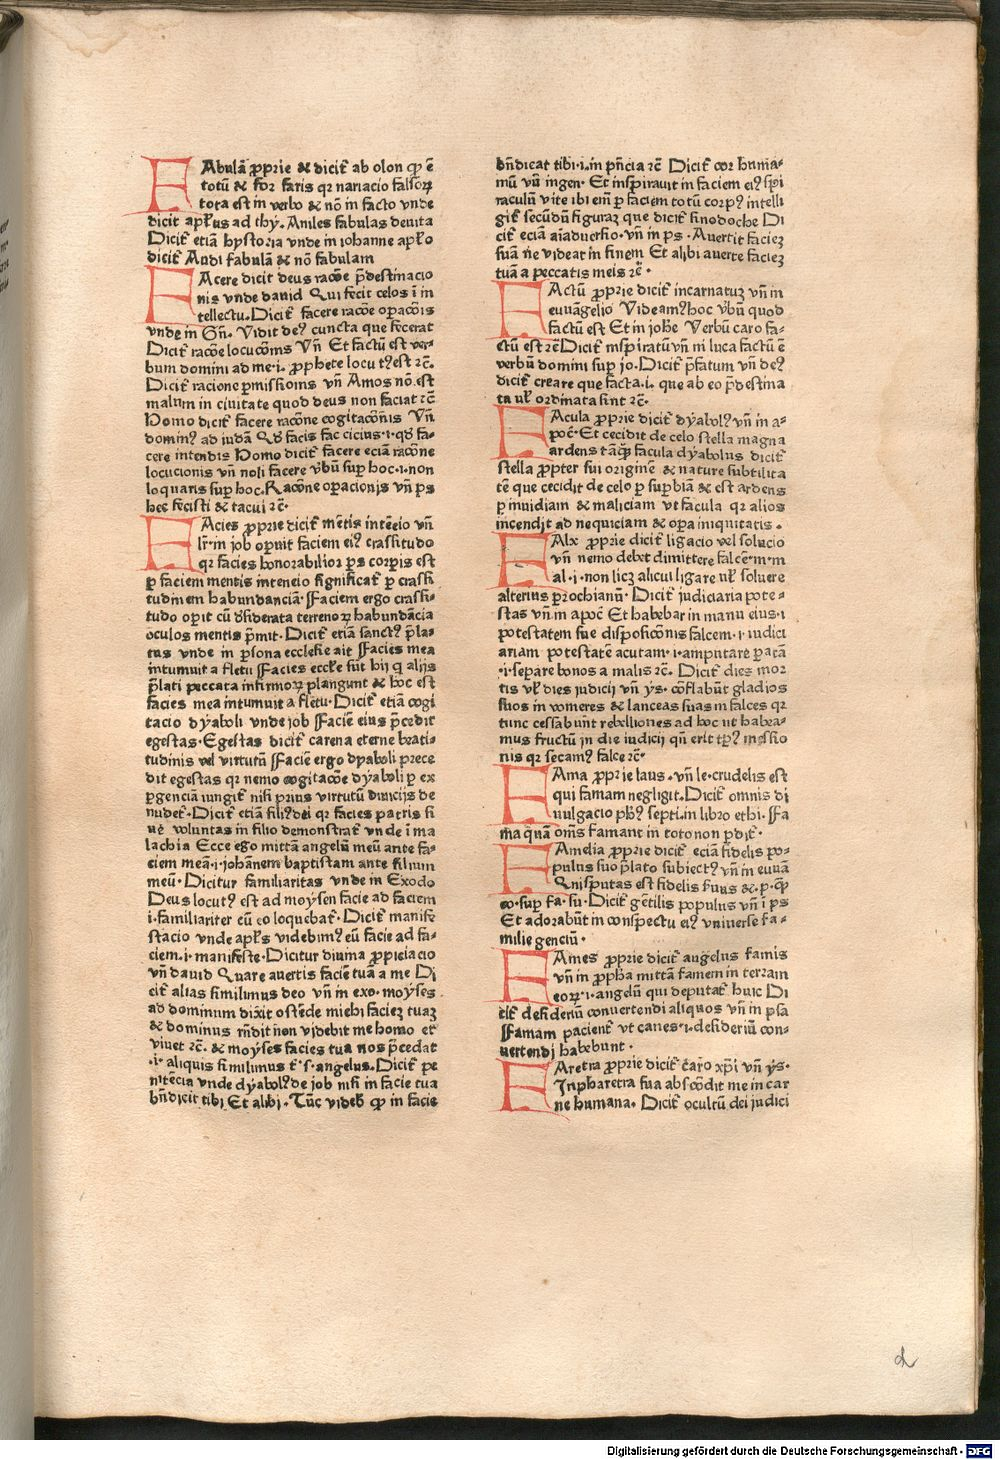 FAbulā ꝓprie & dicit᷑ ab olon qꝫ ē
totū & for faris qr narracio falsoꝝ
tota est in verbo & nō in facto vnde
dicit apłus ad thy. Aniles fabulas deuita
Dicit᷑ etiā hystoria vnde in iohanne apło
dicit᷑ Audi fabulā & nō fabulam
FAcere dicit deus racōe p̄destinacio
nis vnde dauid Qui fecit celos ī in
tellectu. Dicit᷑ facere racōe oꝑacōis
vnde in Gn̄. Vidit deꝰ cuncta que fecerat
Dicit᷑ racōe locucōnis Vn̄ Et factū est ver-
bum domini ad me.i. ꝓphete locutꝰ est rc̄.
Dicit᷑ racione ꝑmissionis vn̄ Amos nō est
malum in ciuitate quod deus non faciat rc̄
Homo dicit᷑ facere racōne cogitacōnis Vn̄
dominꝰ ad iudā Qd̓ facis fac cicius.i.qd̓ fa-
cere intendis Homo dicit᷑ facere eciā racōne
locucionis vn̄ noli facere v̓bū suꝑ hoc.i.non
loquaris suꝑ hoc. Racōne oꝑacionis vn̄ ps
hec fecisti & tacui rc̄.
FAcies ꝓprie dicit᷑ mētis intēcio vn̄
in job oꝑuit faciem eiꝰ crassitudo
qr facies honorabilior ꝑs corꝑis est
ꝑ faciem mentis intencio significat᷑ ꝑ crassi
tudinem habundanciā. Faciem ergo crassi-
tudo oꝑit cū d̓siderata terrenoꝝ habundācia
oculos mentis p̄mit. Dicit᷑ etiā sanctꝰ p̄la-
tus vnde in ꝑsona ecclesie ait Facies mea
intumuit a fletu Facies eccłe sūt hij q̄ alijs
p̄lati peccata infirmoꝝ plangunt & hoc est
facies mea intumuit a fletu. Dicit᷑ etiā cogi
tacio dyaboli vnde job Faciē eius p̄cedit
egestas. Egestas dicit᷑ carena eterne beati-
tudinis vel virtutū Faciē ergo dyaboli prece
dit egestas qr nemo cogitacōe dyaboli ꝑ ex
ꝑgenciā iungit᷑ nisi prius virtutū diuicijs de
nudet᷑. Dicit᷑ etiā filiꝰ dei qr facies patris si
ue voluntas in filio demonstrat᷑ vnde ī ma
lachia Ecce ego mittā angelū meū ante fa-
ciem meā.i.johānem baptistam ante filium
meū. Dicitur familiaritas vnde in Exodo
Deus locutꝰ est ad moysen facie ad faciem
i.familiariter cū eo loquebat᷑. Dicit᷑ manife
stacio vnde apłs videbimꝰ eū facie ad fa-
ciem.i.manifeste. Dicitur diuina ꝓpiciacio
vn̄ dauid Quare auertis faciē tuā a me Di
cit᷑ alias similimus deo vn̄ in exo. moyses
ad dominum dixit ostēde michi facieꝫ tuaꝫ
& dominus rn̄dit non videbit me homo et
viuet rc̄. & moyses facies tua nos p̄cedat
.i. aliquis similimus t᷑.s.angelus. Dicit᷑ pe
nitēcia vnde dyabolꝰ de job nisi in facie tua
bn̄dicit tibi Et alibi. Tūc videb̓ qꝫ in facie
bn̄dicat tibi.i.in pn̄cia rc̄ Dicit᷑ cor huma-
nū vn̄ in gen. Et inspirauit in faciem eiꝰ spi
raculū vite ibi em̄ ꝑ faciem totū corpꝰ intelli
git᷑ secūdū figuraꝫ que dicit᷑ sinodoche Di
cit᷑ eciā aīaduersio.vn̄ in ps. Auertit facieꝫ
suā ne videat in finem Et alibi auerte facieꝫ
tuā a peccatis meis rc̄.
FActū ꝓprie dicit᷑ incarnatuꝫ vn̄ in
euuāgelio Videamꝰ hoc v̓bū quod
factū est Et in joh̄e Verbū caro fa-
ctū est rc̄ Dicit᷑ inspiratū vn̄ in luca factū ē
verbū domini suꝑ jo. Dicit᷑ p̄fatum vn̄ deꝰ
dicit᷑ creare que facta.i. que ab eo p̄destina
ta uł ordinata sint rc̄.
FAcula ꝓprie dicit᷑ dyabolꝰ vn̄ in a-
poc̄. Et cecidit de celo stella magna
ardens tāqꝫ facula dyabolus dicit᷑
stella ꝓpter sui originē & nature subtilita
tē que cecidit de celo ꝑ suꝑbiā & est ardens
ꝑ inuidiam & maliciam vt facula qr alios
incendit ad nequiciam & oꝑa iniquitatis.
FAlx ꝓprie dicit᷑ ligacio vel solucio
vn̄ nemo debet dimittere falcē.m̄.m
al.i.non liceꝫ alicui ligare uł soluere
alterius ꝑrochianū. Dicit᷑ judiciaria pote-
stas vn̄ in apoc̄ Et habebat in manu eius.i
potestatem sue disposicōnis falcem.i.iudici
ariam potestatē acutam.i.amputare pctā
.i.separe bonos a malis rc̄. Dicit᷑ dies mor
tis uł dies judicij vn̄ ys. cōflabūt gladios
suos in vomeres & lanceas suas in falces qr
tunc cessabunt rebelliones ad hoc ut habea-
mus fructū in die iudicij qn̄ erit tp̄ꝰ messio
nis qr secamꝰ falce rc̄.
FAma ꝓprie laus.vn̄ le.crudelis est
qui famam negligit. Dicit᷑ omnis di
uulgacio ph̓s septi.in libro ethi. Fa
ma quā om̄s famant in toto non ꝑdit᷑.
FAmilia ꝓprie dicit᷑ eciā fidelis po-
pulus suo p̄lato subiectꝰ vn̄ in euuā
Quis putas est fidelis s̓uus &.p.qꝫ
eo.suꝑ fa.su. Dicit᷑ gētilis populus vn̄ ī ps
Et adorabūt in conspectu eiꝰ vniuerse fa-
milie genciū.
FAmes ꝓprie dicit᷑ angelus famis
vn̄ in ꝓph̄a mittā famem in terram
eoꝝ.i.angelū qui deputat᷑ huic Di
cit᷑ desideriū conuertendi aliquos vn̄ in psa
Famam pacient᷑ vt canes.i.desideriū con-
uertendi habebunt.
FAretra ꝓprie dicit᷑ caro xp̄i vn̄ ys.
In pharetra sua abscōdit me in car
ne humana. Dicit᷑ ocultū dei judici
d
Digitalisierung gefördert durch die Deutsche Forschungsgemeinschaft - DFG